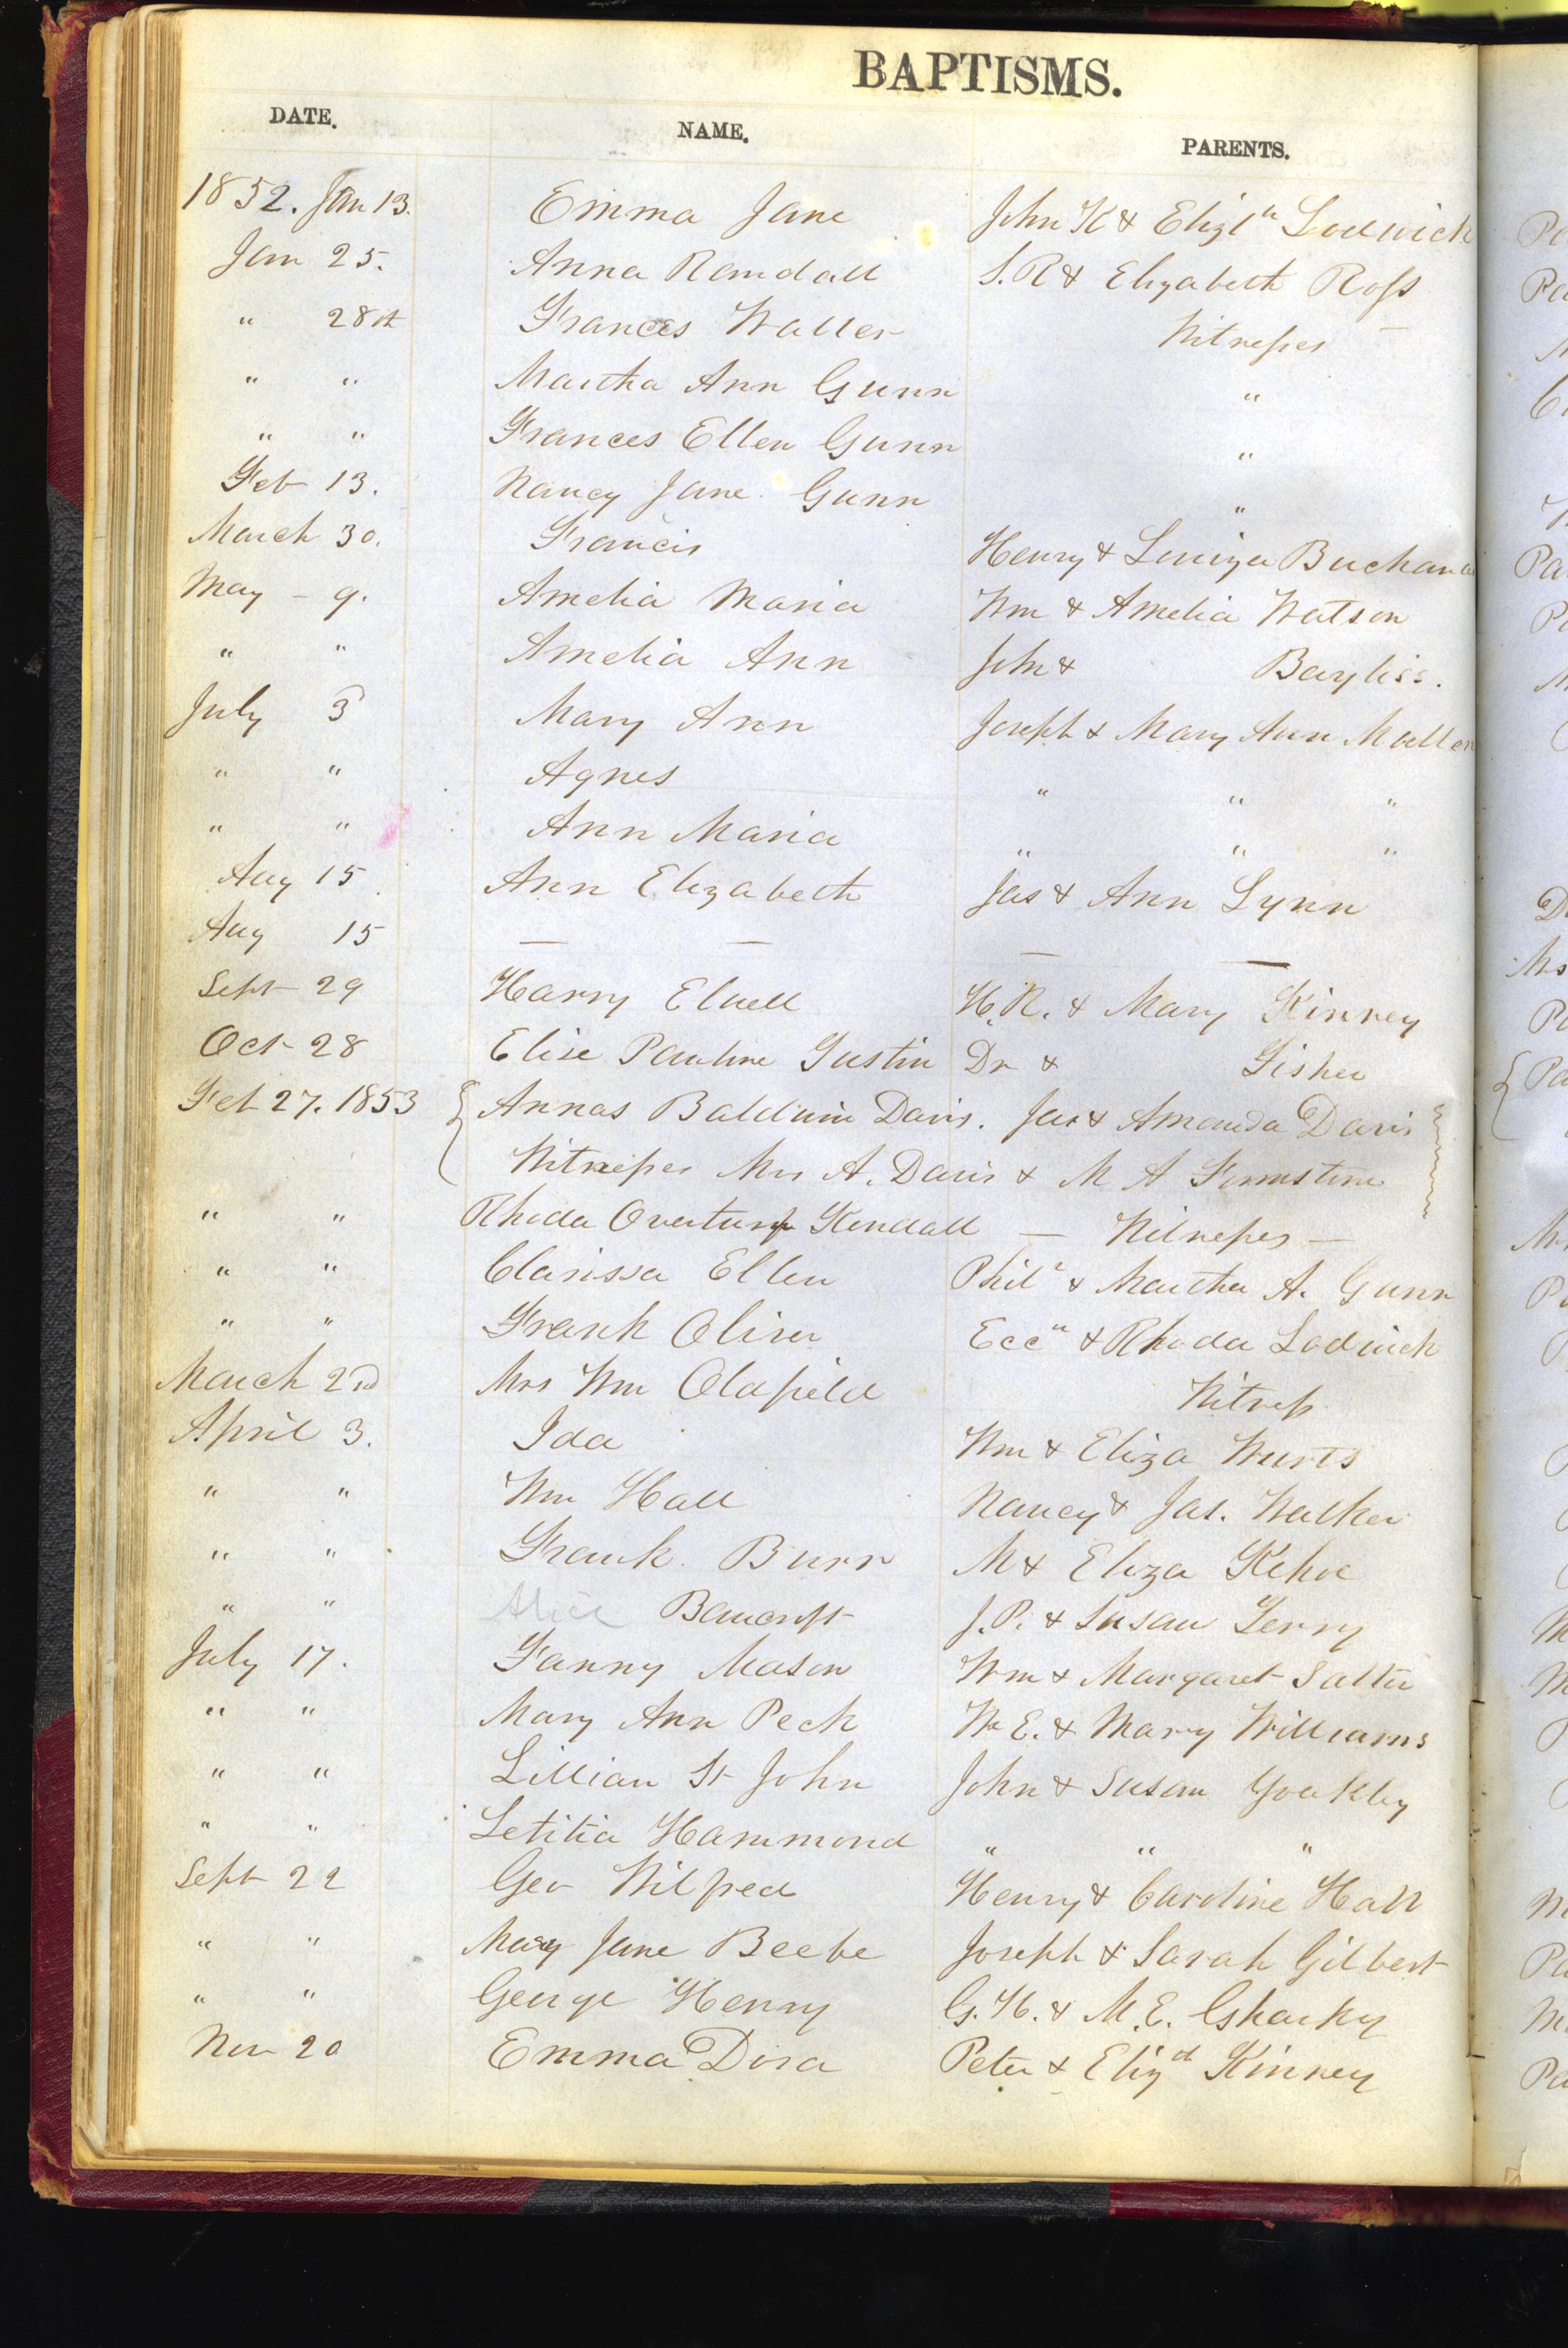 BAPTISMS.
DATE. NAME. PARENTS.
1852. Jan 13. Emma Jane John K & Elizth Lodwick
Jan 25. Anna Randall S. R & Elizabeth Ross
" 28th Frances Waller Witnesses —
" " Martha Ann Gunn "
" " Frances Ellen Gunn "
Feb 13. Nancy Jane Gunn "
March 30. Francis Henry & Louiza Buchanan
May - 9. Amelia Maria Wm & Amelia Watson
" " Amelia Ann John & Bayliss.
July 3 Mary Ann Joseph & Mary Ann
" " Agnes " " "
" " Ann Maria " " "
Aug 15 Ann Elizabeth Jas & Ann Lynn
Aug 15 — — — —
Sept 29 Harry Elwell H. R. & Mary Kinney
Oct 28 Elise Pauline Dr &
Feb 27. 1853 { Annas Baldwin Davis. Jas & Amanda Davis
Witnesses Mrs A. Davis & M A
" " Rhoda Overturf Kendall — Witnesses —
" " Clarissa Ellen & Martha A. Gunn
" " Frank Oliver & Rhoda Lodwick
March 2nd Mrs Wm Oldfield Witness
April 3. Ida Wm & Eliza Wurts
" " Wm Hall Nancy & Jas. Walker
" " Frank Burr M & Eliza Kehoe
" " Alice Bancroft J. P. & Susan Terry
July 17. Fanny Mason Wm & Margaret Salter
" " Mary Ann Peck W E. & Mary Williams
" " Lillian St John John & Susan Yoakley
" " Letitia Hammond " " "
Sept 22 Geo Wilfred Henry & Caroline Hall
" " Mary Jane Beebe Joseph & Sarah Gilbert
" " George Henry G. H. & M. E. Gharky
Nov 20 Emma Dora Peter & Elizth Kinney